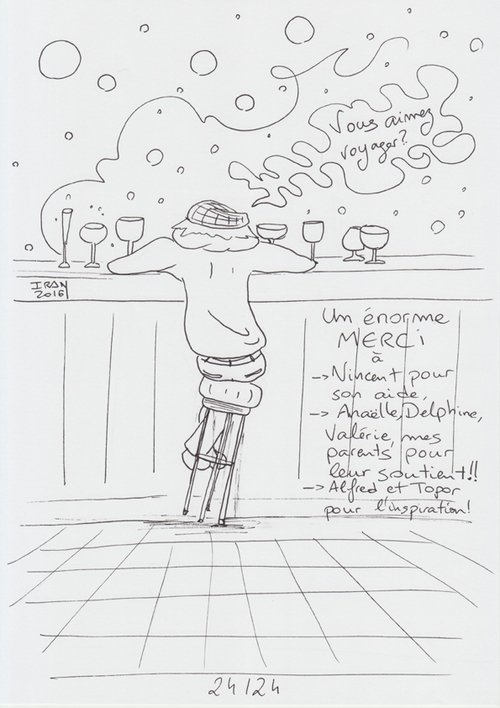 Vous aimez
voyager?
IRAN
2016
Un énorme
MERCI
à
-> Nincent pour
son aide,
-> Anaëlle, Delphine,
Valérie, mes
parents pour
leur soutient!!
-> Alfred et Topor
pour l'inspiration!
24/24